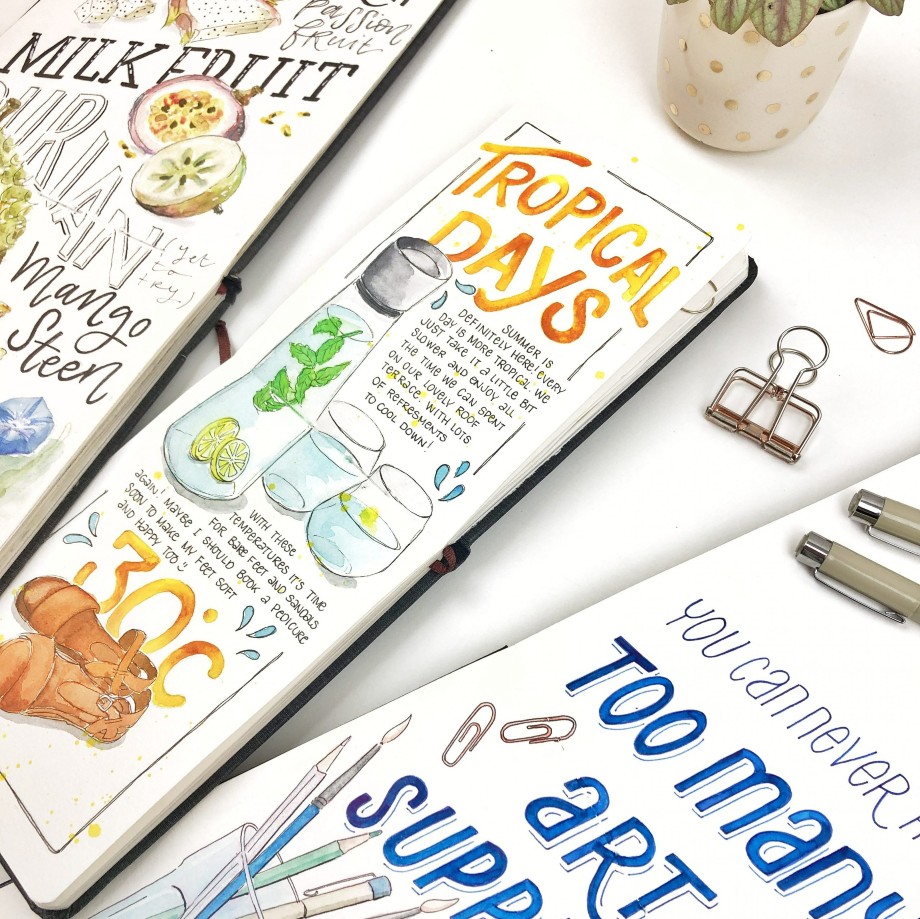 passion
fruit
MILK FRUIT
URIAN
(yet
to
try.)
Mango
Steen
TROPICAL
DAYS
SUMMER IS
DEFINITELY HERE! EVERY
DAY IS MORE TROPICAL. WE
JUST TAKE IT A LITTLE BIT
SLOWER AND ENJOY ALL
THE TIME WE CAN SPENT
ON OUR LOVELY ROOF
TERRACE. WITH LOTS
OF REFRESMENTS
TO COOL DOWN!
WITH THESE
TEMPERATURES IT'S TIME
FOR BARE FEET AND SANDALS
AGAIN! MAYBE I SHOULD BOOK A PEDICURE
SOON TO MAKE MY FEET SOFT
AND HAPPY TOO!!
30°C
YOU can never
TOO many
aRT
SUPP